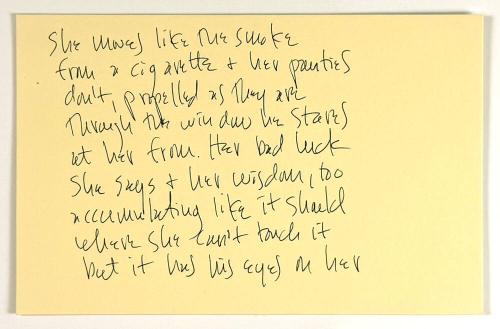 She moves like the smoke
from a cigarette & her panties
don't, propelled as they are
through the window he stares
at her from. Her bad luck
she says & her wisdom, too
accumulating like it should
where she can't touch it
but it has his eyes on her